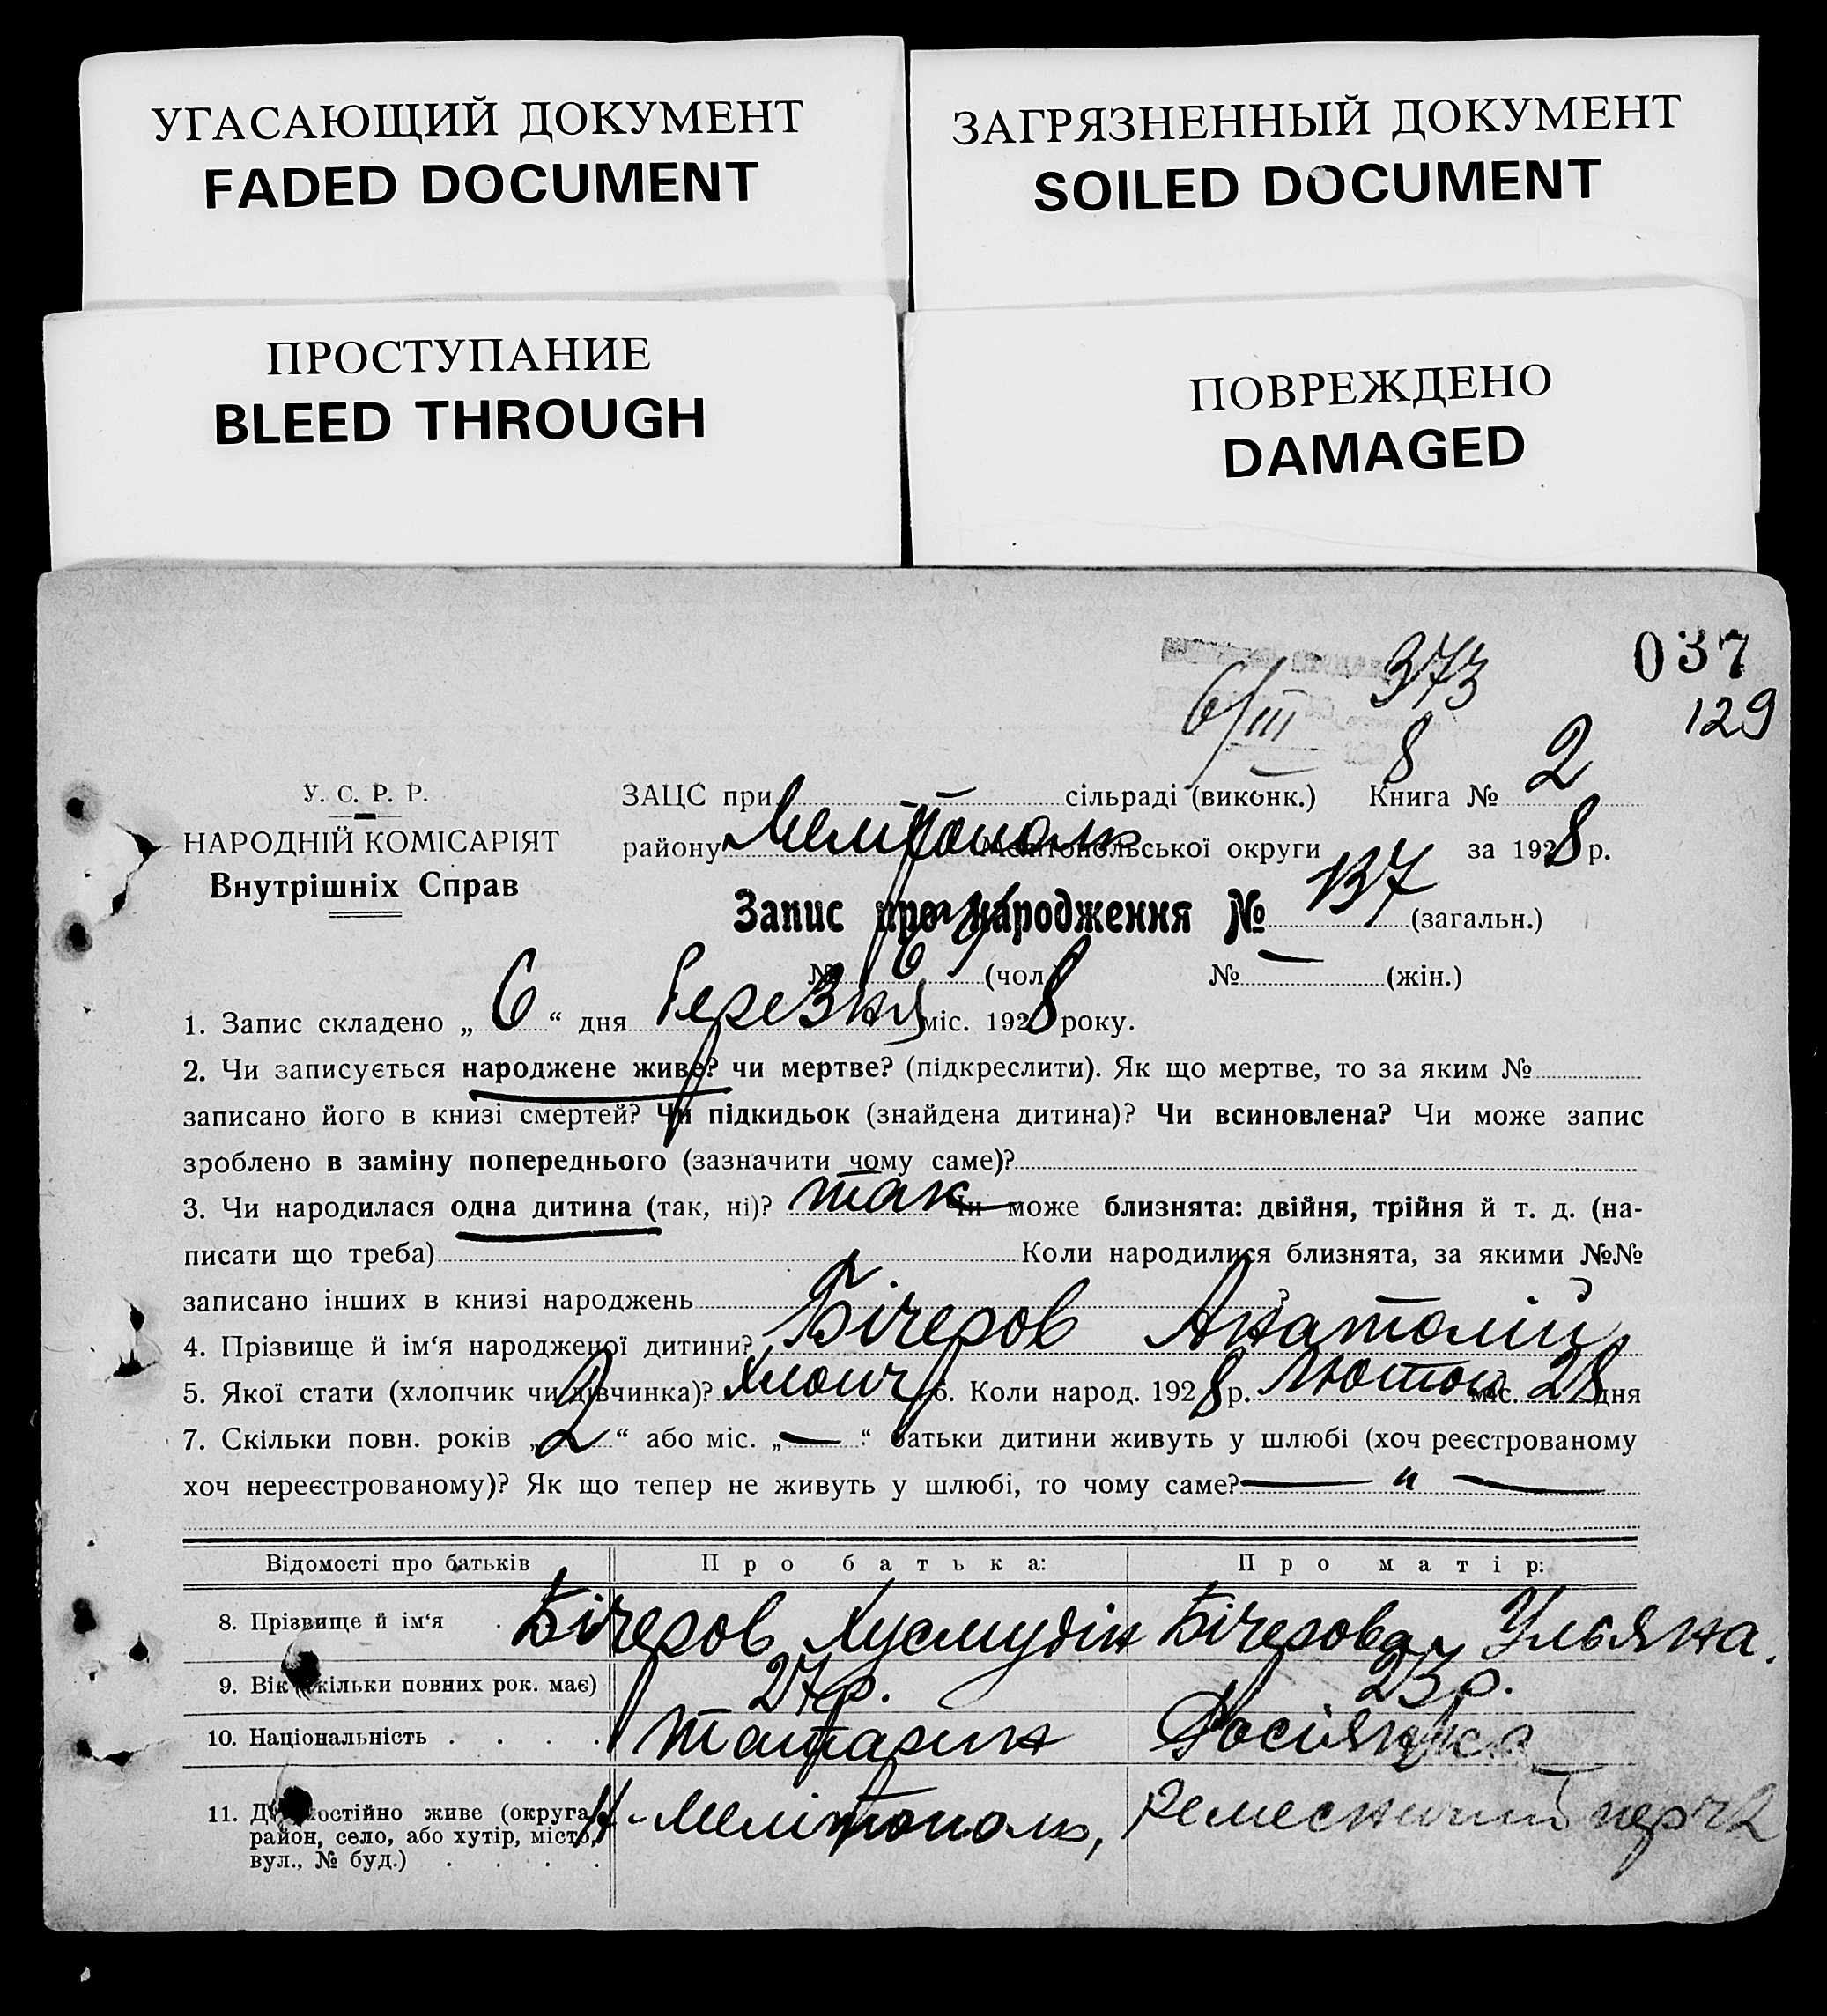 УГАСАЮЩИЙ ДОКУМЕНТ
FADED DOCUMENT
ЗАГРЯЗНЕННЫЙ ДОКУМЕНТ
SOILED DOCUMENT
ПРОСТУПАНИЕ
BLEED THROUGH
ПОВРЕЖДЕНО
DAMAGED
037
373
129
6/III
8
У. С. Р. Р.
НАРОДНІЙ КОМІСАРІЯТ
Внутрішніх Справ
ЗАЦС при сільраді (виконк.) Книга № 2
району Мелітополь Мелітопольської округи за 1928 р.
Запис про народження № 137 (загальн.)
№ (чол.) № — (жін.)
1. Запис складено „ 6 “ дня Березня міс. 1928 року.
2. Чи записується народжене живе? чи мертве? (підкреслити). Як що мертве, то за яким №
записано його в книзі смертей? Чи підкидьок (знайдена дитина)? Чи всиновлена? Чи може запис
зроблено в заміну попереднього (зазначити чому саме)?
3. Чи народилася одна дитина (так, ні)? так Чи може близнята: двійня, трійня й т. д. (на-
писати що треба) Коли народилися близнята, за якими №№
записано інших в книзі народжень
4. Прізвище й ім‘я народженої дитини? Бічеров Анатолій
5. Якої стати (хлопчик чи дівчинка)? Хлопч 6. Коли народ. 1928 р. Лютого міс. 28 дня
7. Скільки повн. років „ 2 “ або міс. „ — “ батьки дитини живуть у шлюбі (хоч реєстрованому
хоч нереєстрованому)? Як що тепер не живуть у шлюбі, то чому саме? — „ —
Відомості про батьків Про батька: Про матір:
8. Прізвище й ім‘я Бічеров Хусмудін Бічерова Ульяна.
9. Вік (скільки повних рок. має) 27 р. 23 р.
10. Національність Татарин Росіянка
11. Де постійно живе (округа, район, село, або хутір, місто, вул., № буд.) Мелітополь, Ремесничий 2